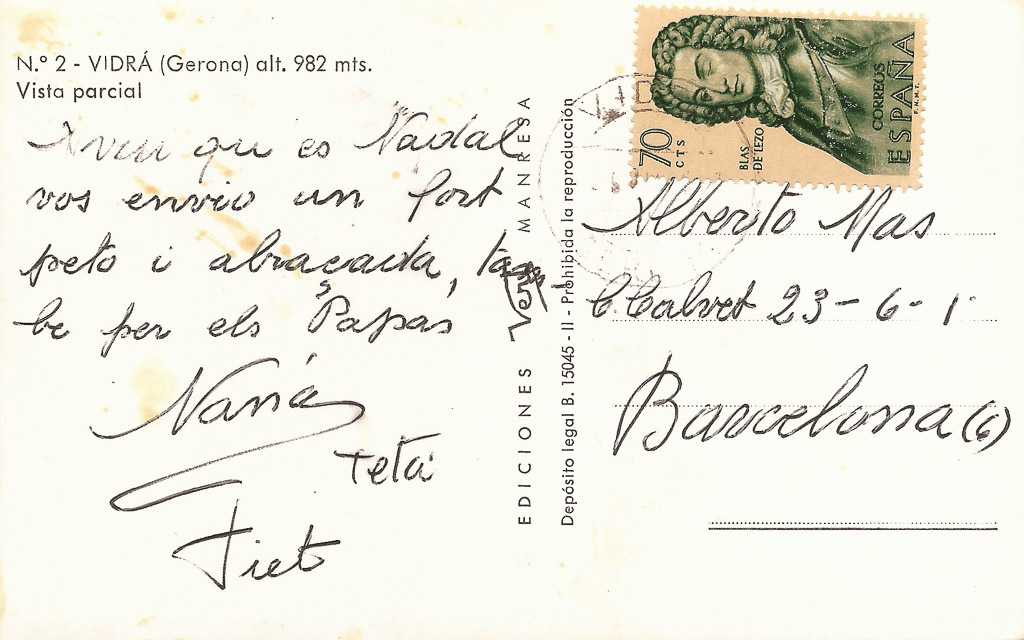 N.º 2 - VIDRÁ (Gerona) alt. 982 mts.
Vista parcial
Avui que es Nadal
vos envio un fort
peto i abraçada, tam
be per els Papás
Teta
Tiet
EDICIONES MANRESA
Depósito legal B. 15045 - II - Prohibida la reproducción
70
CTS
BLAS
DE LEZO
CORREOS
ESPAÑA
F.N.M.T.
VID
Alberto Mas
C Calvet 23-6-1
Barcelona (6)